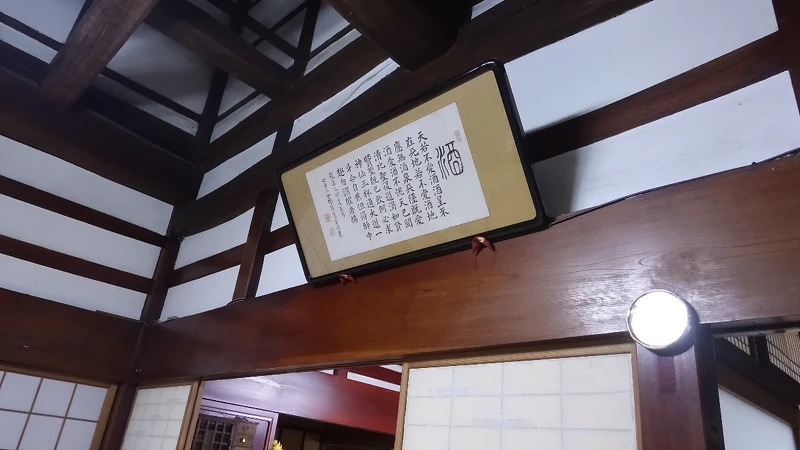 酒
天若不愛酒酒星不
在天地若不愛酒地
應無酒泉天地既愛
酒愛酒不愧天已聞
清比聖復道濁如賢
賢聖既已飲何必求
神仙三杯通大道一
斗合自然但得醉中
趣勿謂醒者傳